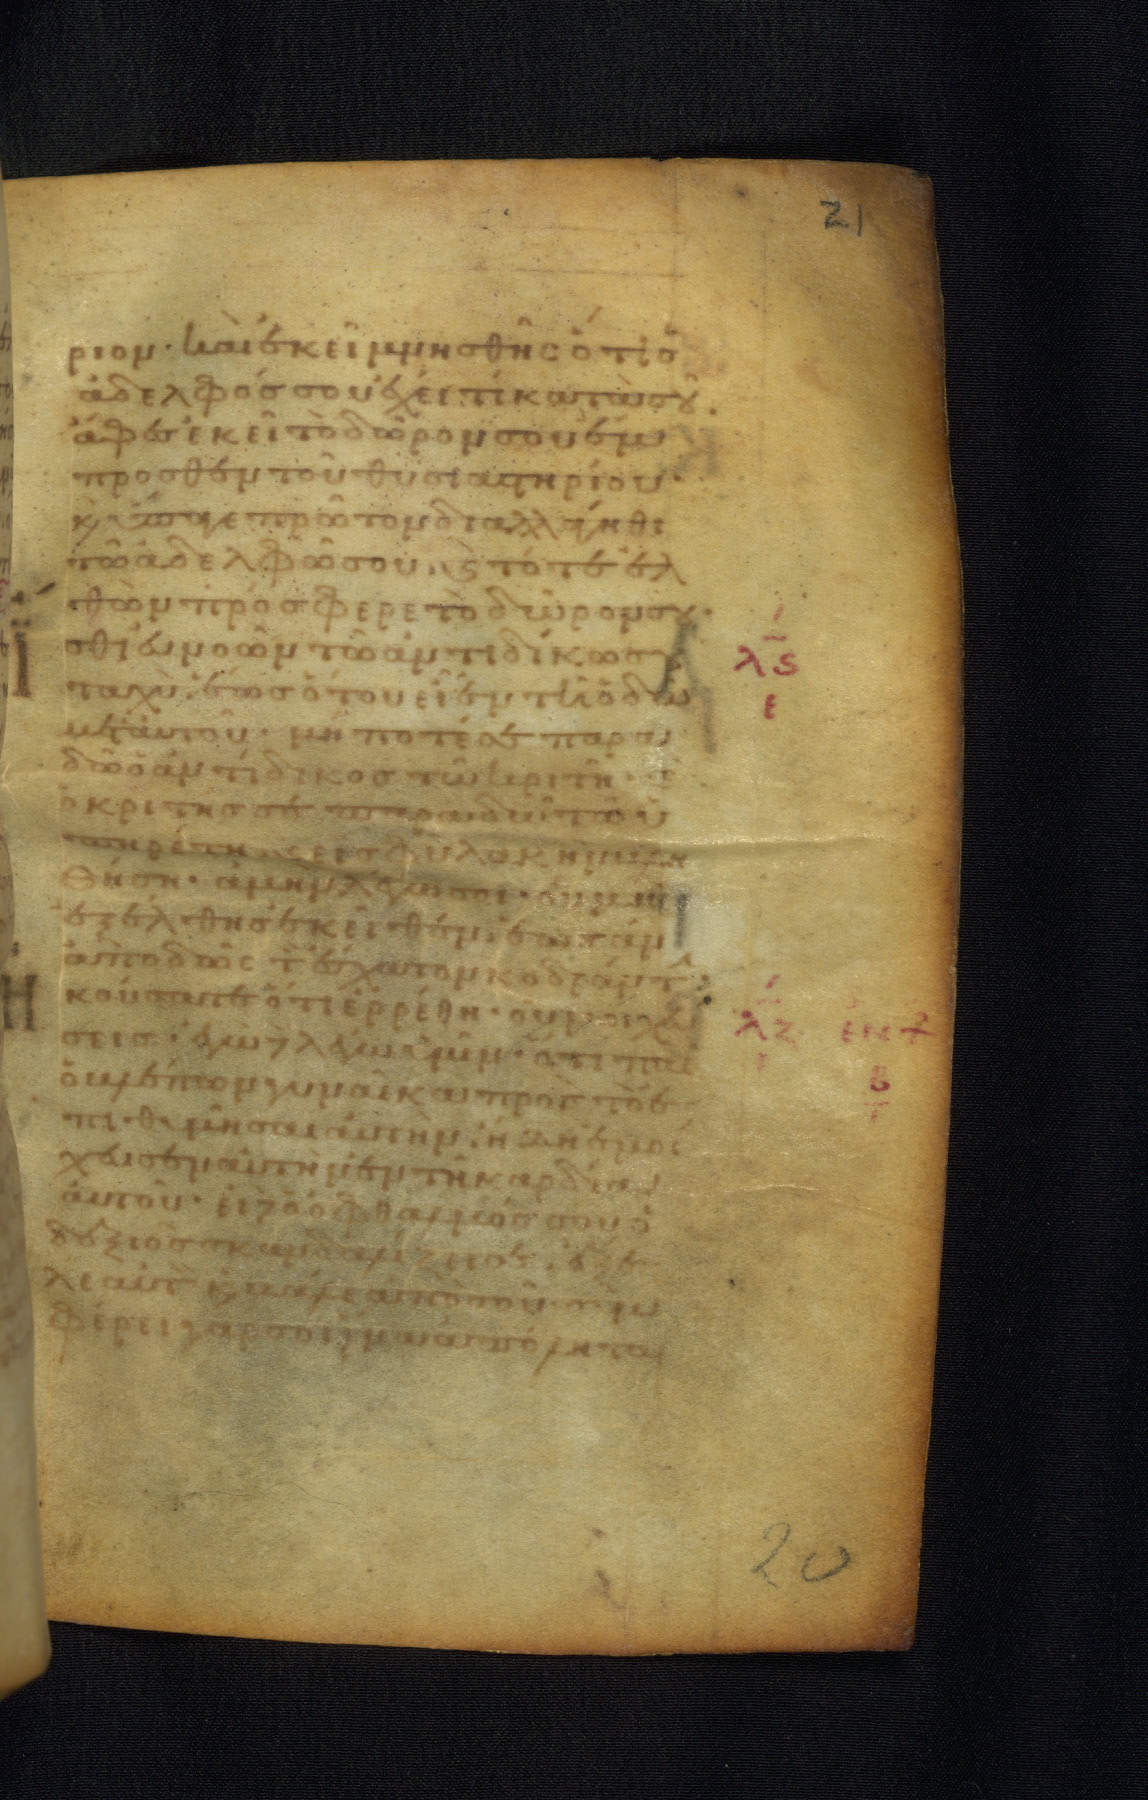 21
ριον· καὶ ἐκεῖ μνησθῆς ὅτι ὁ
ἀδελφός σου ἔχει τί κατὰ σοῦ
ἄφες ἐκεῖ τὸ δῶρον σου ἔμ
προσθεν τοῦ θυσιαστηρίου·
καὶ ὕπαγε πρῶτον διαλλάγηθι
τῶ ἀδελφῶ σου· καὶ τότε ἐλ
θὼν πρόσφερε τὸ δῶρον σου·
σθι εὐνοῶν τῶ ἀντιδίκω σου
ταχὺ· ἕως ὅτου εἶ ἐν τῆ ὁδῶ
μετ' αὐτοῦ· μή ποτέ σε παρα
δῶ ὁ ἀντίδικος τῶ κριτῆ· καὶ
ὁ κριτής σε παραδῶ τῶ ὑ
πηρέτη· καὶ εἰς φυλακὴν βλη
θήση· ἀμὴν λέγω σοι· οὐ μὴ
ἐξέλθης ἐκεῖθεν· ἕως ἂν
ἀποδῶς τ ἔσχατον κοδράντ
κούσατε ὅτι ἐρρέθη· οὐ μοιχεύ
σεις· ἐγὼ δὲ λέγω ὑμῖν· ὅτι πᾶς
ὁ βλέπων γυναῖκα πρὸς τὸ ἐ
πιθυμῆσαι αὐτὴν· ἤδη ἐμοί
χευσεν αὐτὴν ἐν τῆ καρδία
αὐτοῦ· εἰ δὲ ὁ ὀφθαλμός σου ὁ
δεξιὸς σκανδαλίζει σε· ἔξε
λε αὐτ καὶ βάλε ἀπὸ σοῦ· συμ
φέρει γάρ σοι ἵνα ἀπόληται
λς
ε
λζ
ι
β
20